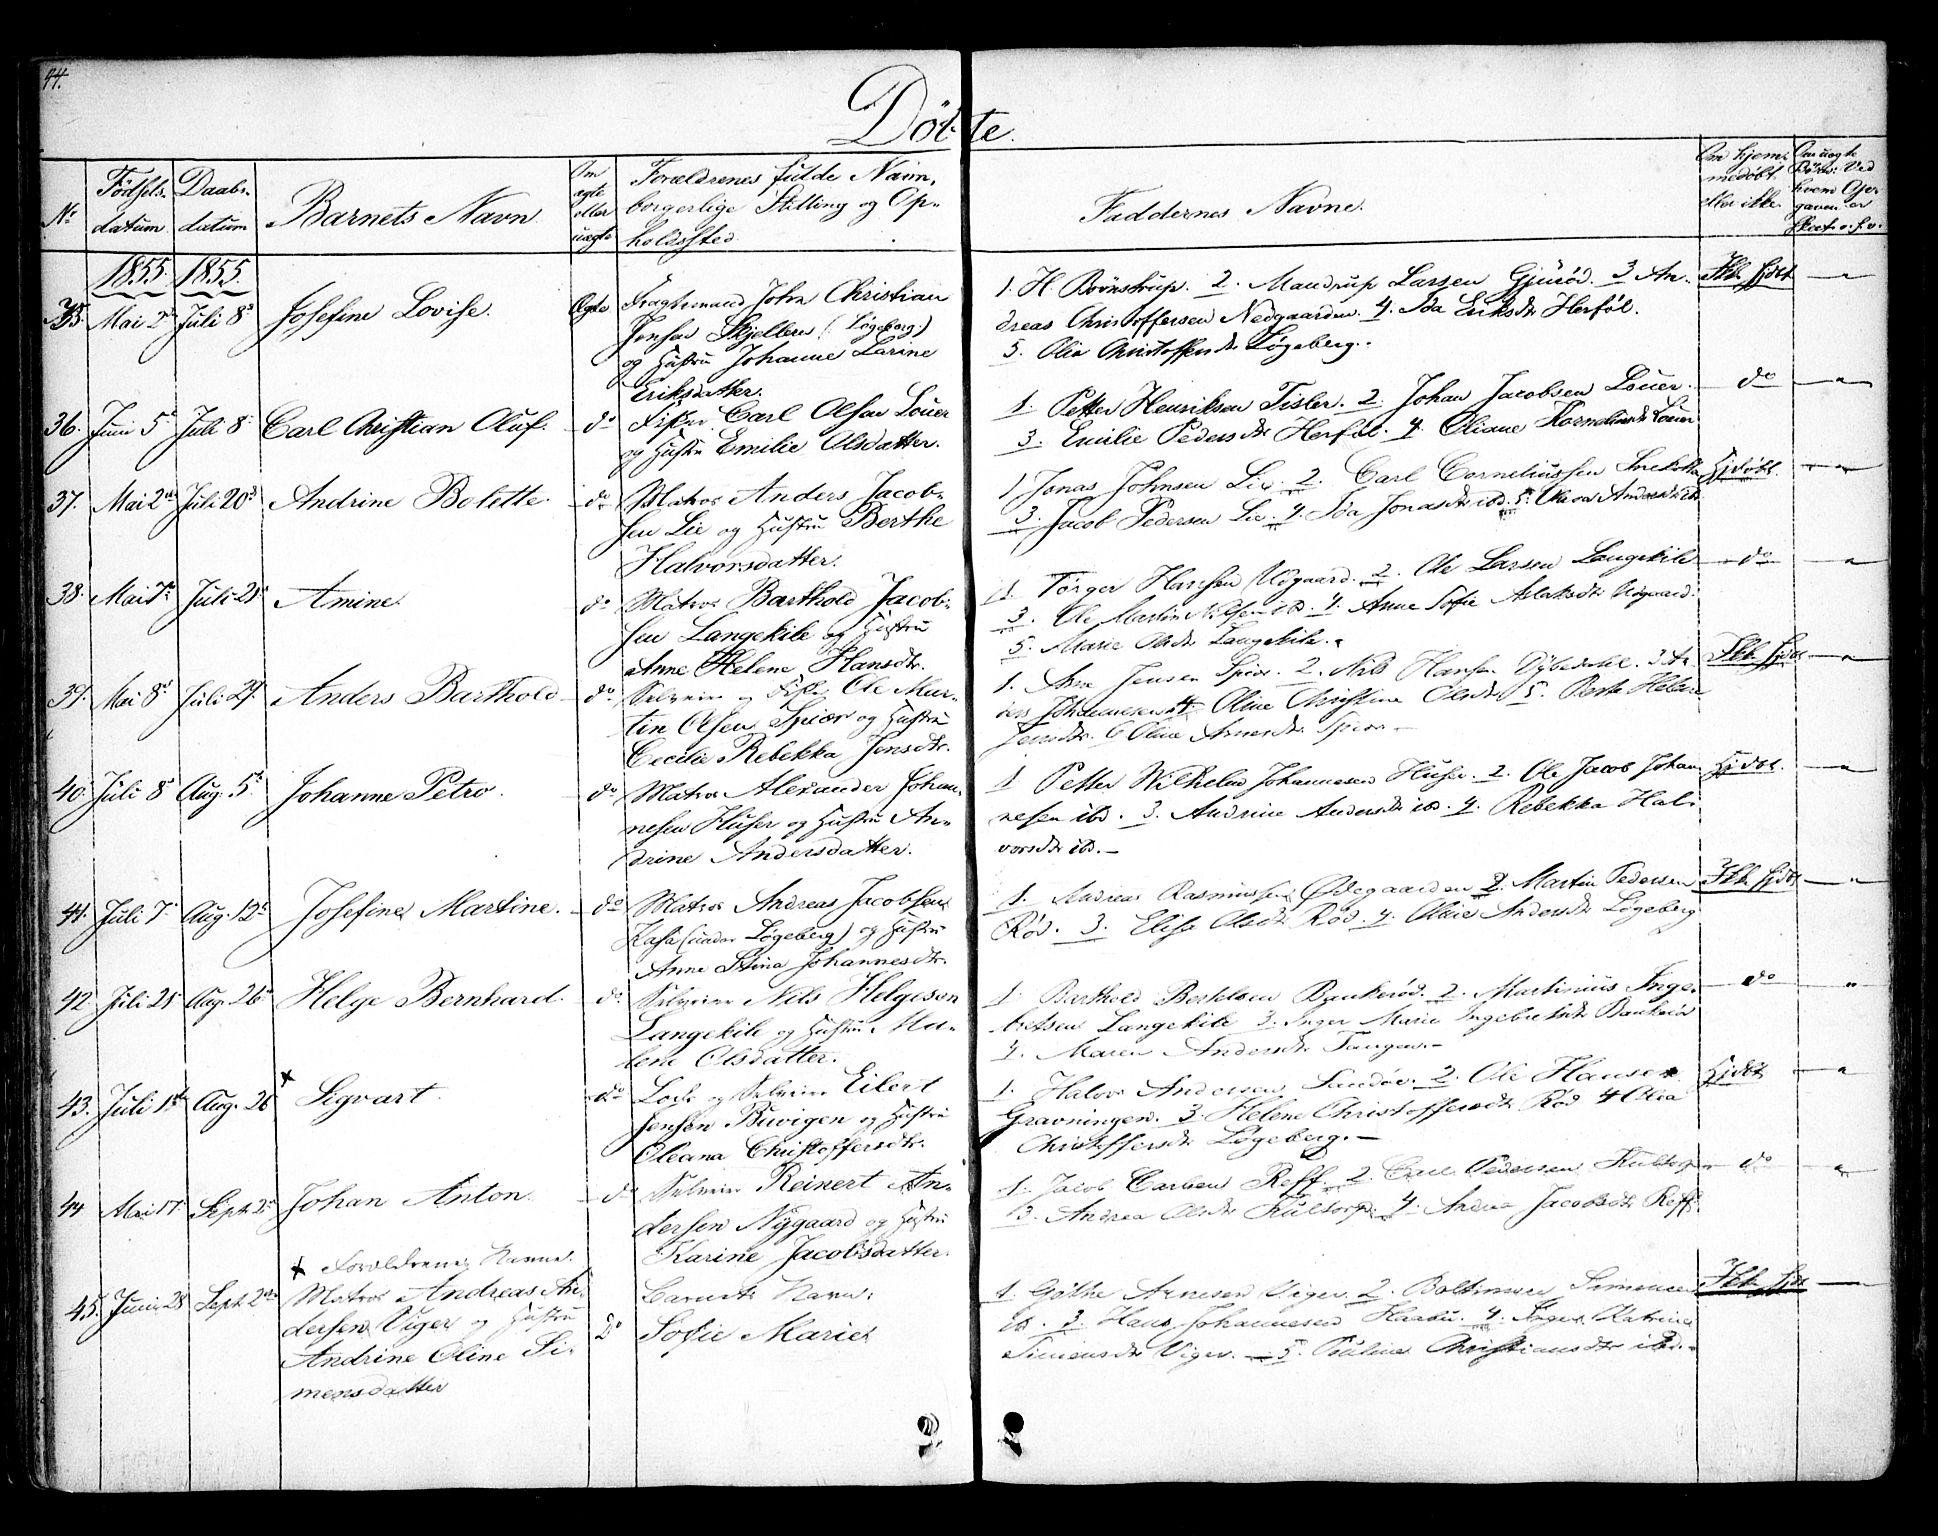 44.
Döbte.
No
Födsels-
datum
Daabs-
datum
Barnets Navn
Om
ægte
eller
uægte
Forældrenes fulde Navn,
borgerlige Stilling og Op-
holdssted
Faddernes Navne.
Om hjem-
medöbt
eller ikke.
1855. 1855.
35. Mai 2den Juli 8de Josefine Lovise. Ægte Fragtemand John Christian
Jensen Skjelleren (Løgeberg)
og Hustru Johanne Larine
Eriksdatter.
1. H Brönstrup. 2. Mandrup Larsen Gjerød. 3 An-
dreas Christoffersen Nedgaarden. 4. Ida Eriksdtr Herføl.
5. Olia Christoffersdtr Løgeberg.
Ikk. hjdøbt
36. Juni 5te Juli 8de Carl Christian Oluf. do Fisker Carl Olsen Louer
og Hustru Emilie Olsdatter.
1. Petter Henriksen Tisler. 2. Johan Jacobsen Louer.
3. Emilie Pedersdtr Herføl. 4. Oliane Korneliusdtr Louer
do
37. Mai 2den Juli 20de Andrine Bolette. do Matros Anders Jacob-
sen Lie og Hustru Berthe
Halvorsdatter.
1 Jonas Johnsen Lie. 2. Carl Corneliussen
3. Jacob Pedersen Lie. 4. Ida Jonasdtr ibd. 5. Andersdtr ibd
Hjdøbt.
38. Mai 7de Juli 21 Amine. do Matros Barthold Jacob-
sen Langekile og Hustru
Anne Helene Hansdtr.
1. Törger Hansen Udgaard. 2. Ole Larsen Langekile
3. Ole Martin Nilsen ibd. 4. Anne Sofie Udgaard.
5. Marie Olsdtr Langekile.
do
39. Mai 8de Juli 29. Anders Barthold do Selveier og Fisker Ole Mar-
tin Olsen Spiær og Hustru
Cecilie Rebekka Jensdtr.
1. Jensen Spiær. 2. Nils Hansen Dybedahl. 3 An-
ders Johannesen 4. Oline Christine Olsdtr 5. Berte Helene
Jensdtr. 6 Oline Arnesdtr Spiær.
Ikk. hjdøbt
40. Juli 8de Aug. 5te Johanne Petro. do Matros Alexander Johan-
nesen Huser og Hustru An-
drine Andersdatter.
1 Petter Wilhelm Johannesen Huser. 2. Ole Jacob Johan-
nesen ibd. 3. Andrine Andersdtr ibd 4. Rebekka Hal-
vorsdtr ibd.
Hjdøbt.
41. Juli 7de Aug. 12te Josefine Martine. do Matros Andreas Jacobsen
Kasa (under Løgeberg) og Hustru
Anne Stina Johannesdtr.
1. Andreas Rasmussen Ødegaarden 2. Martin Pedersen
Rød. 3. Elise Olsdtr Rød. 4. Oline Andersdtr Løgeberg
Ikk. hjdøbt
42. Juli 21 Aug. 26de Helge Bernhard. do Selveier Nils Helgesen
Langekile og Hustru Ma-
lene Olsdatter.
1. Barthold Bertelsen Bankerød. 2. Martinius Inge-
bretsen Langekile 3. Inger Marie Ingebretsdtr Bankerød
4. Maren Andersdtr Tangen.
do
43. Juli 1ste Aug. 26 x Sigvart. do Lods og Selveier Eilert
Jensen Buvigen og Hustru
Oleana Christoffersdtr.
1. Halvor Andersen Sandøe. 2. Ole Hansen
Gravningen. 3. Helene Christoffersdtr Rød 4 Olia
Christoffersdtr Løgeberg.
Hjdøbt
44 Mai 17 Sept. 2den Johan Anton. do Selveier Reinert An-
dersen Nygaard og Hustru
Karine Jacobsdatter.
1. Jacob Carlsen Reff. 2. Carl Pedersen Kultorp
3. Andrea Olsdtr Kultorp. 4. Andrea Jacobsdtr Reff.
do
x Forældrenes Navne.
45. Juni 28 Sept. 2den Matros Andreas An-
dersen Viger og Hustru
Andrine Oline Si-
mensdatter
do
Barnets Navn:
Sofie Marie
1. Göthe Arnesen Viger. 2. Simensen
ib. 3. Hans Johannesen 4. Inger Katrine
Simensdtr Viger. 5. Pauline Christiansdtr ibd.
Ikk. hjdøbt